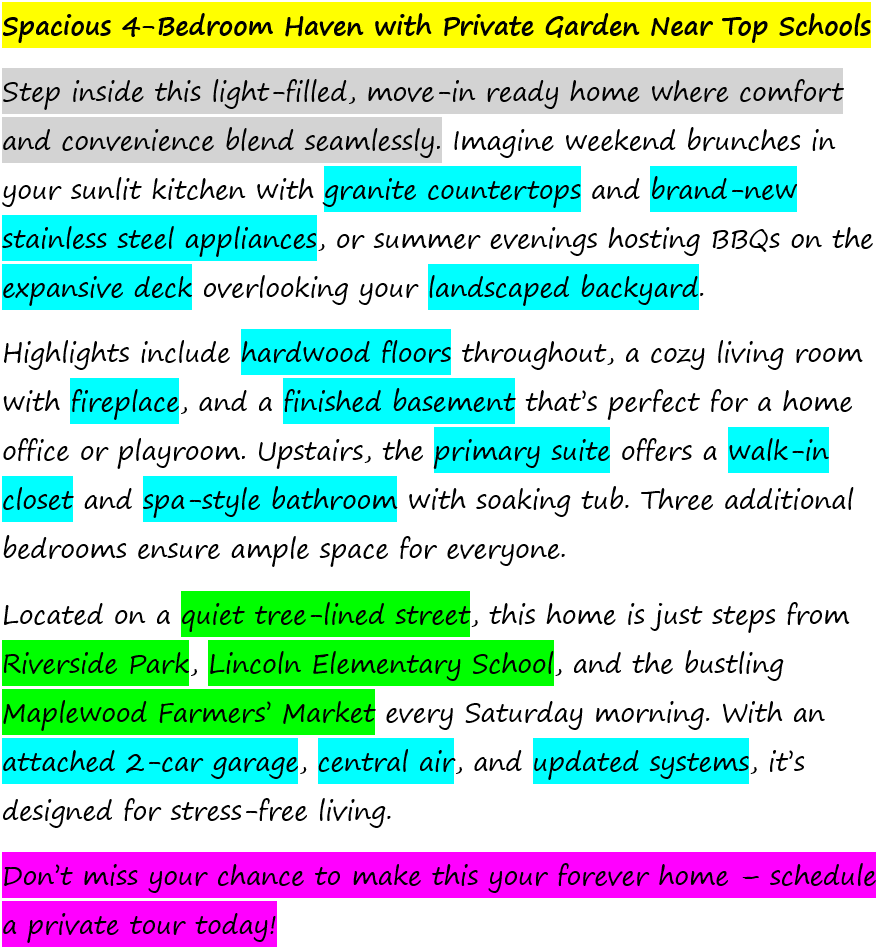 Spacious 4-Bedroom Haven with Private Garden Near Top Schools
Step inside this light-filled, move-in ready home where comfort
and convenience blend seamlessly. Imagine weekend brunches in
your sunlit kitchen with granite countertops and brand-new
stainless steel appliances, or summer evenings hosting BBQs on the
expansive deck overlooking your landscaped backyard.
Highlights include hardwood floors throughout, a cozy living room
with fireplace, and a finished basement that’s perfect for a home
office or playroom. Upstairs, the primary suite offers a walk-in
closet and spa-style bathroom with soaking tub. Three additional
bedrooms ensure ample space for everyone.
Located on a quiet tree-lined street, this home is just steps from
Riverside Park, Lincoln Elementary School, and the bustling
Maplewood Farmers’ Market every Saturday morning. With an
attached 2-car garage, central air, and updated systems, it’s
designed for stress-free living.
Don’t miss your chance to make this your forever home – schedule
a private tour today!